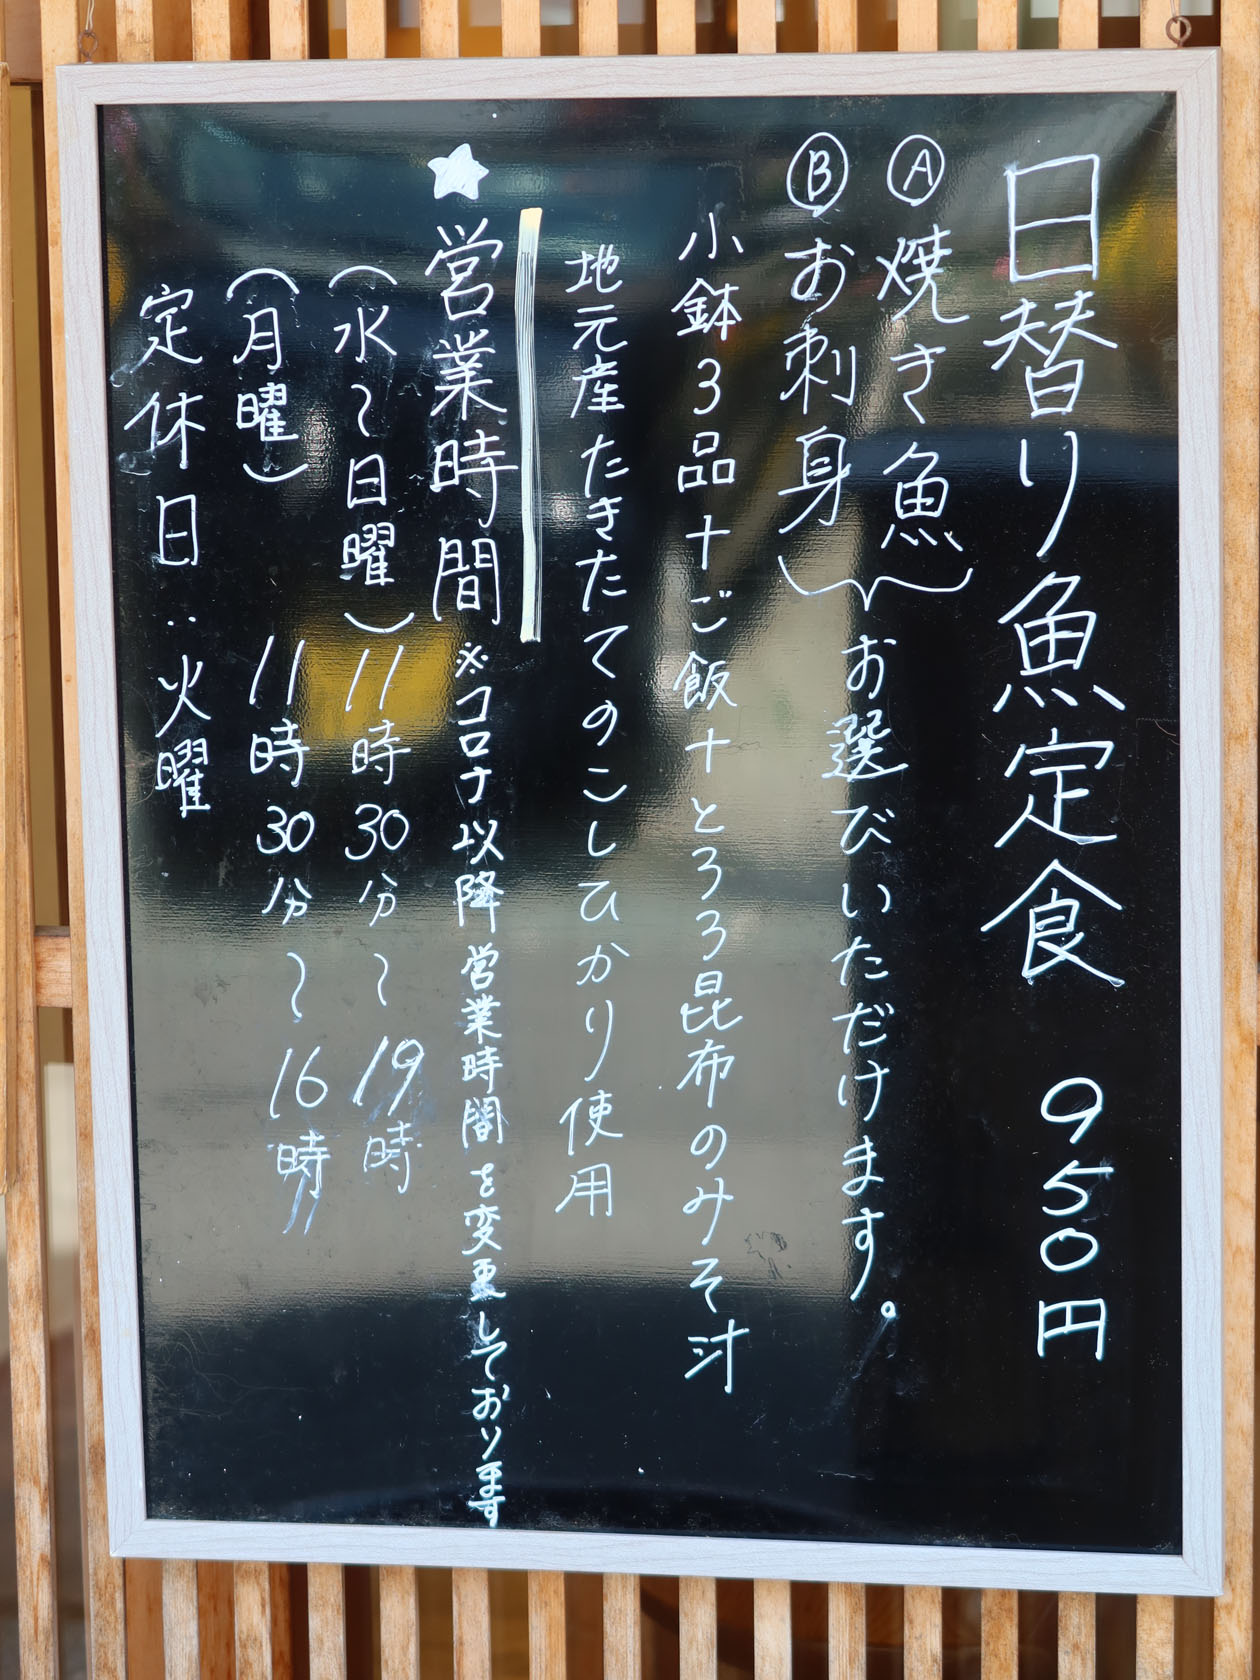 日替り魚定食 950円
Ⓐ焼き魚
Ⓑお刺身
お選びいただけます。
小鉢3品+ご飯+とろろ昆布のみそ汁
地元産たきたてのこしひかり使用
★営業時間 ※コロナ以降営業時間を変更しております
(水〜日曜) 11時30分〜19時
(月曜) 11時30分〜16時
定休日:火曜